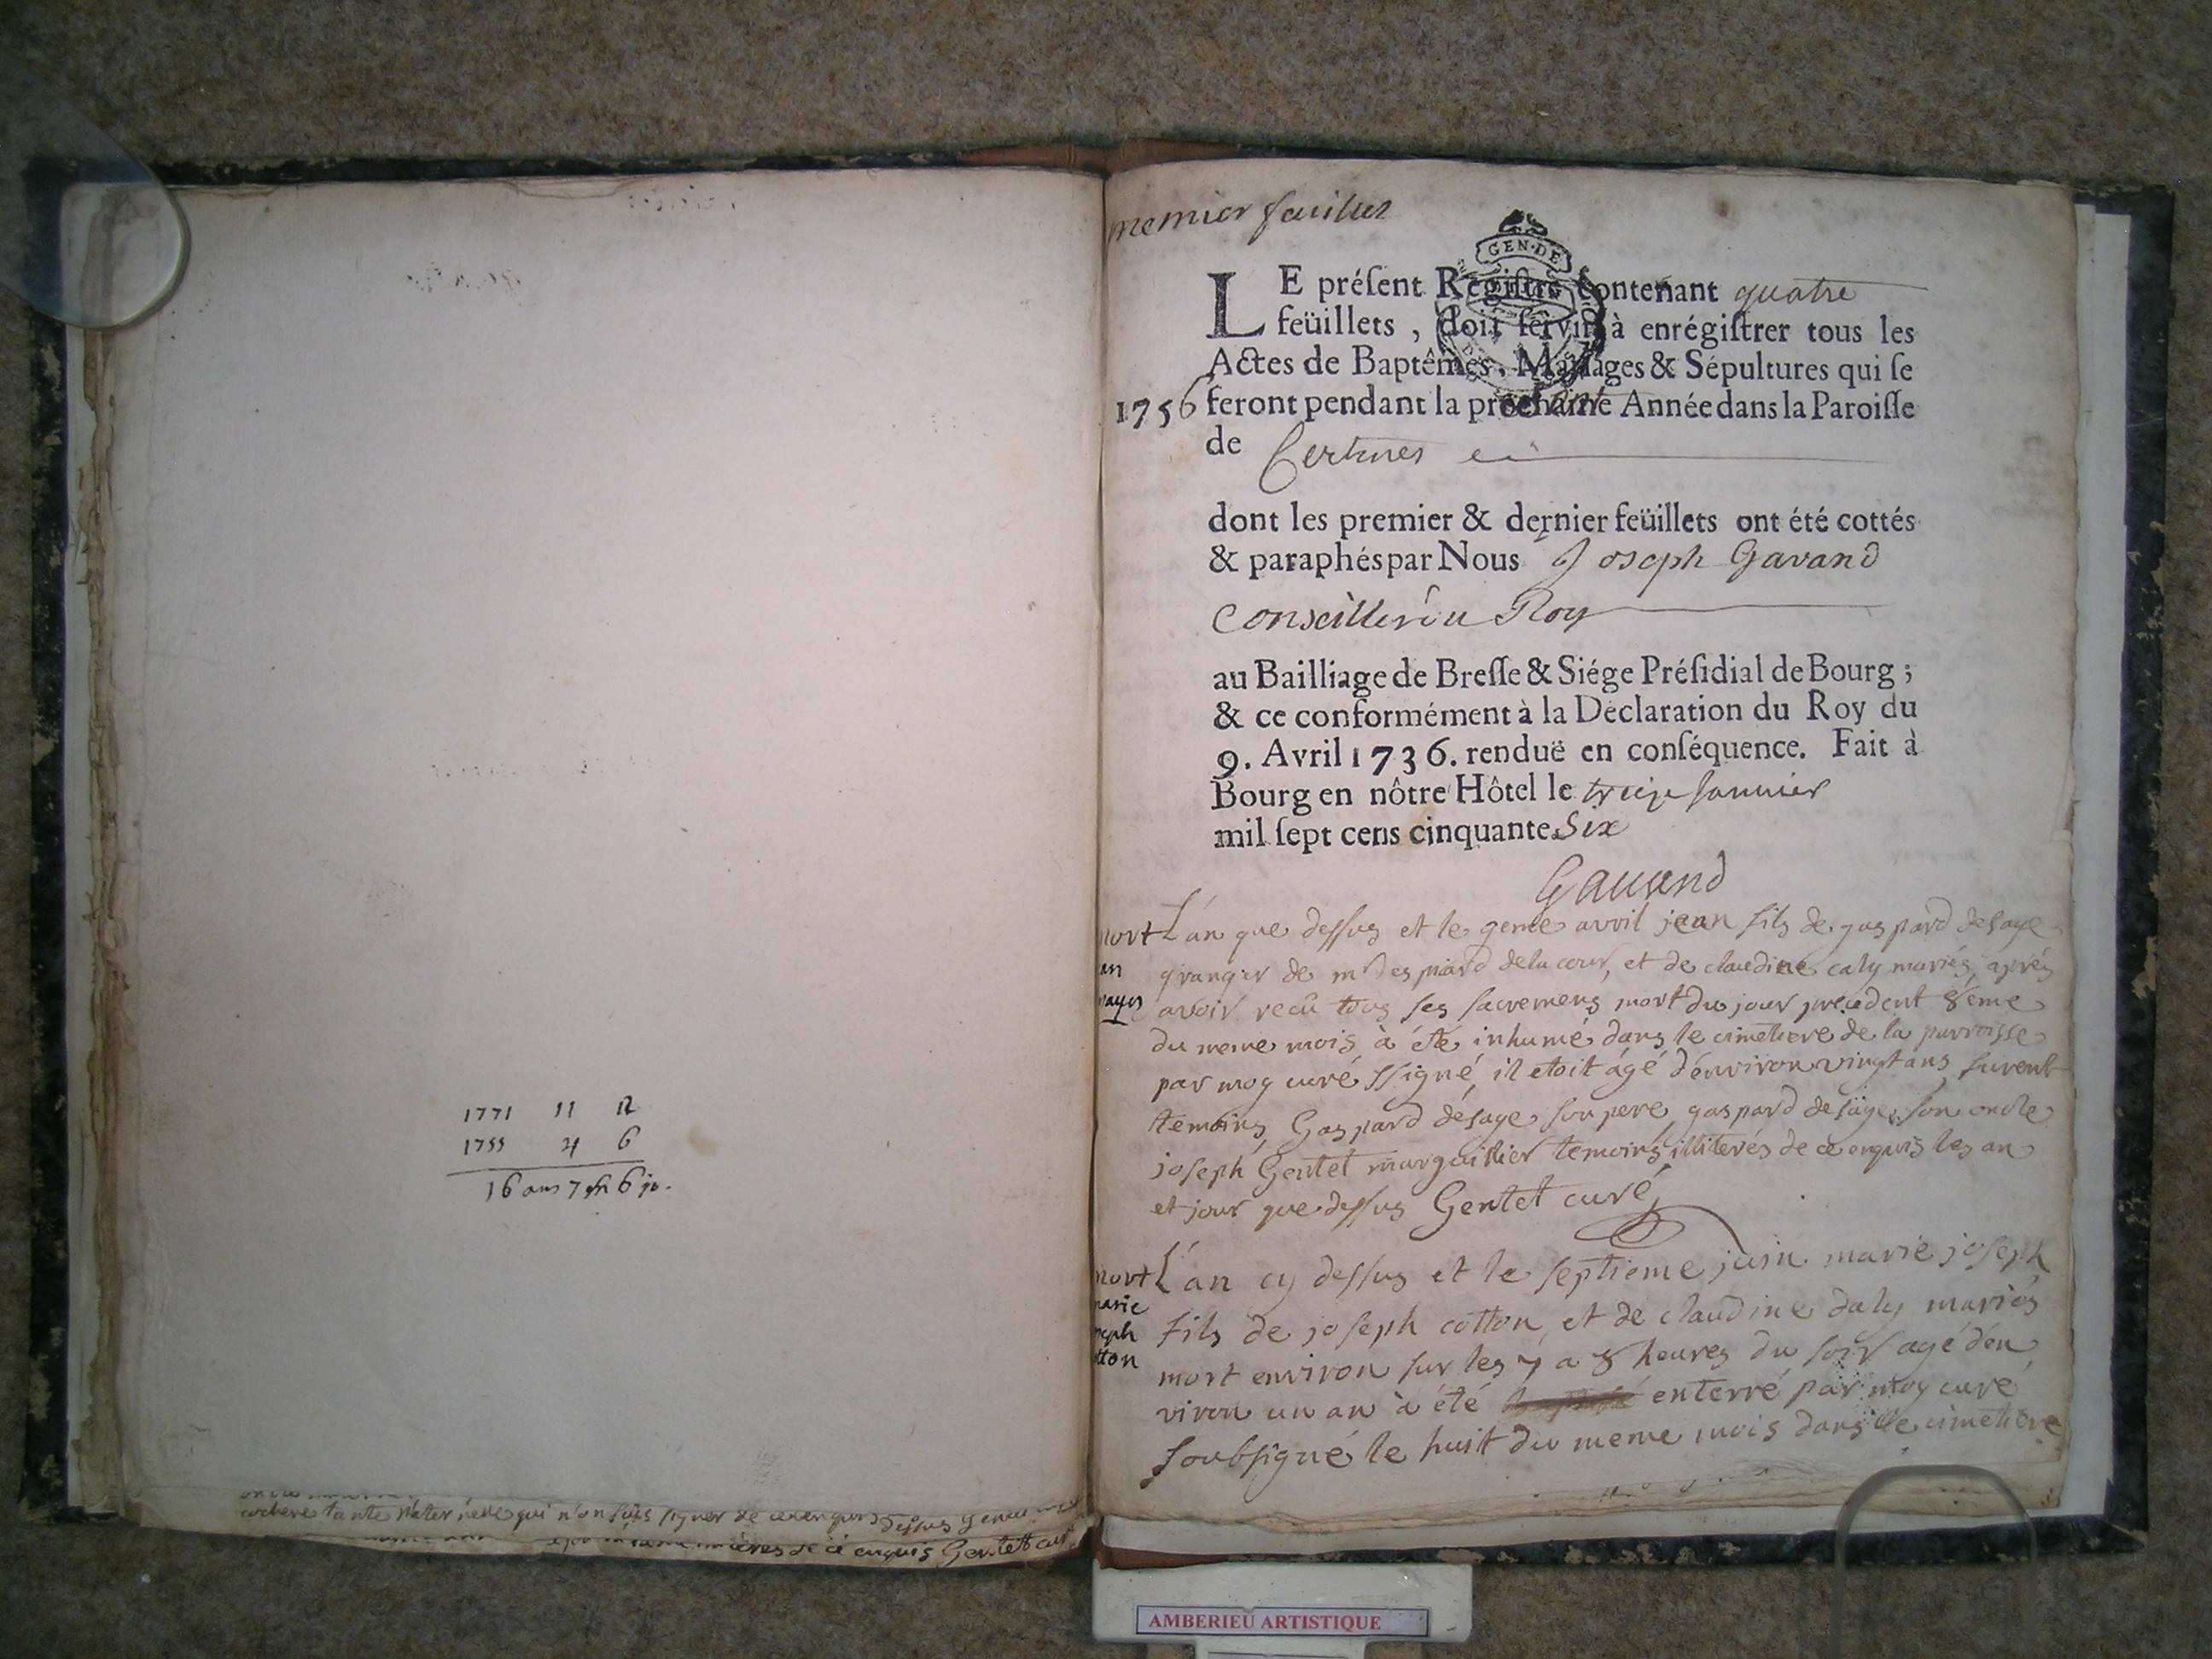 1771 11 12
1755 4 6
16 ans 7 6 jo.
cochere tante qui n'on sçus signer de ce enquis dessus
de ce enquis Gentet curé
premier feuillet
GEN·DE
LE préſent Regiſtre contenant quatre
feüillets, doit ſervir à enrégiſtrer tous les
Actes de Baptêmes, Mariages & Sépultures qui ſe
1756 feront pendant la prochaine Année dans la Paroiſſe
de Certines
dont les premier & dernier feüillets ont été cottés
& paraphés par Nous Joseph Gavand
Conseiller du Roy
au Bailliage de Breſſe & Siége Préſidial de Bourg;
& ce conformément à la Déclaration du Roy du
9. Avril 1736. renduë en conſéquence. Fait à
Bourg en nôtre Hôtel le treize Janvier
mil ſept cens cinquante Six
Gavand
mort L'an que dessus et le 9eme avril jean fils de gaspard desaye
granger de mr despiard delacour, et de claudine caly mariés, aprés
avoir recû tous ses sacremens mort du jour precedent 8eme
du meme mois à été inhumé dans le cimetiere de la parroisse
par moy curé ssigné, il etoit âgé d'environ vingt ans, furent
temoins Gaspard desaye son pere, gaspard desaye son oncle
joseph Gentet marguillier temoins illiterés de ce enquis les an
et jour que dessus Gentet curé
mort L'an cy dessus et le septieme juin marie joseph
marie
fils de joseph cotton et de claudine daly mariés
joseph
cotton
mort environ sur les 7 a 8 heures du soir agé d'en
viron un an à été enterré par moy curé
soubsigné le huit du meme mois dans le cimetiere
AMBERIEU ARTISTIQUE